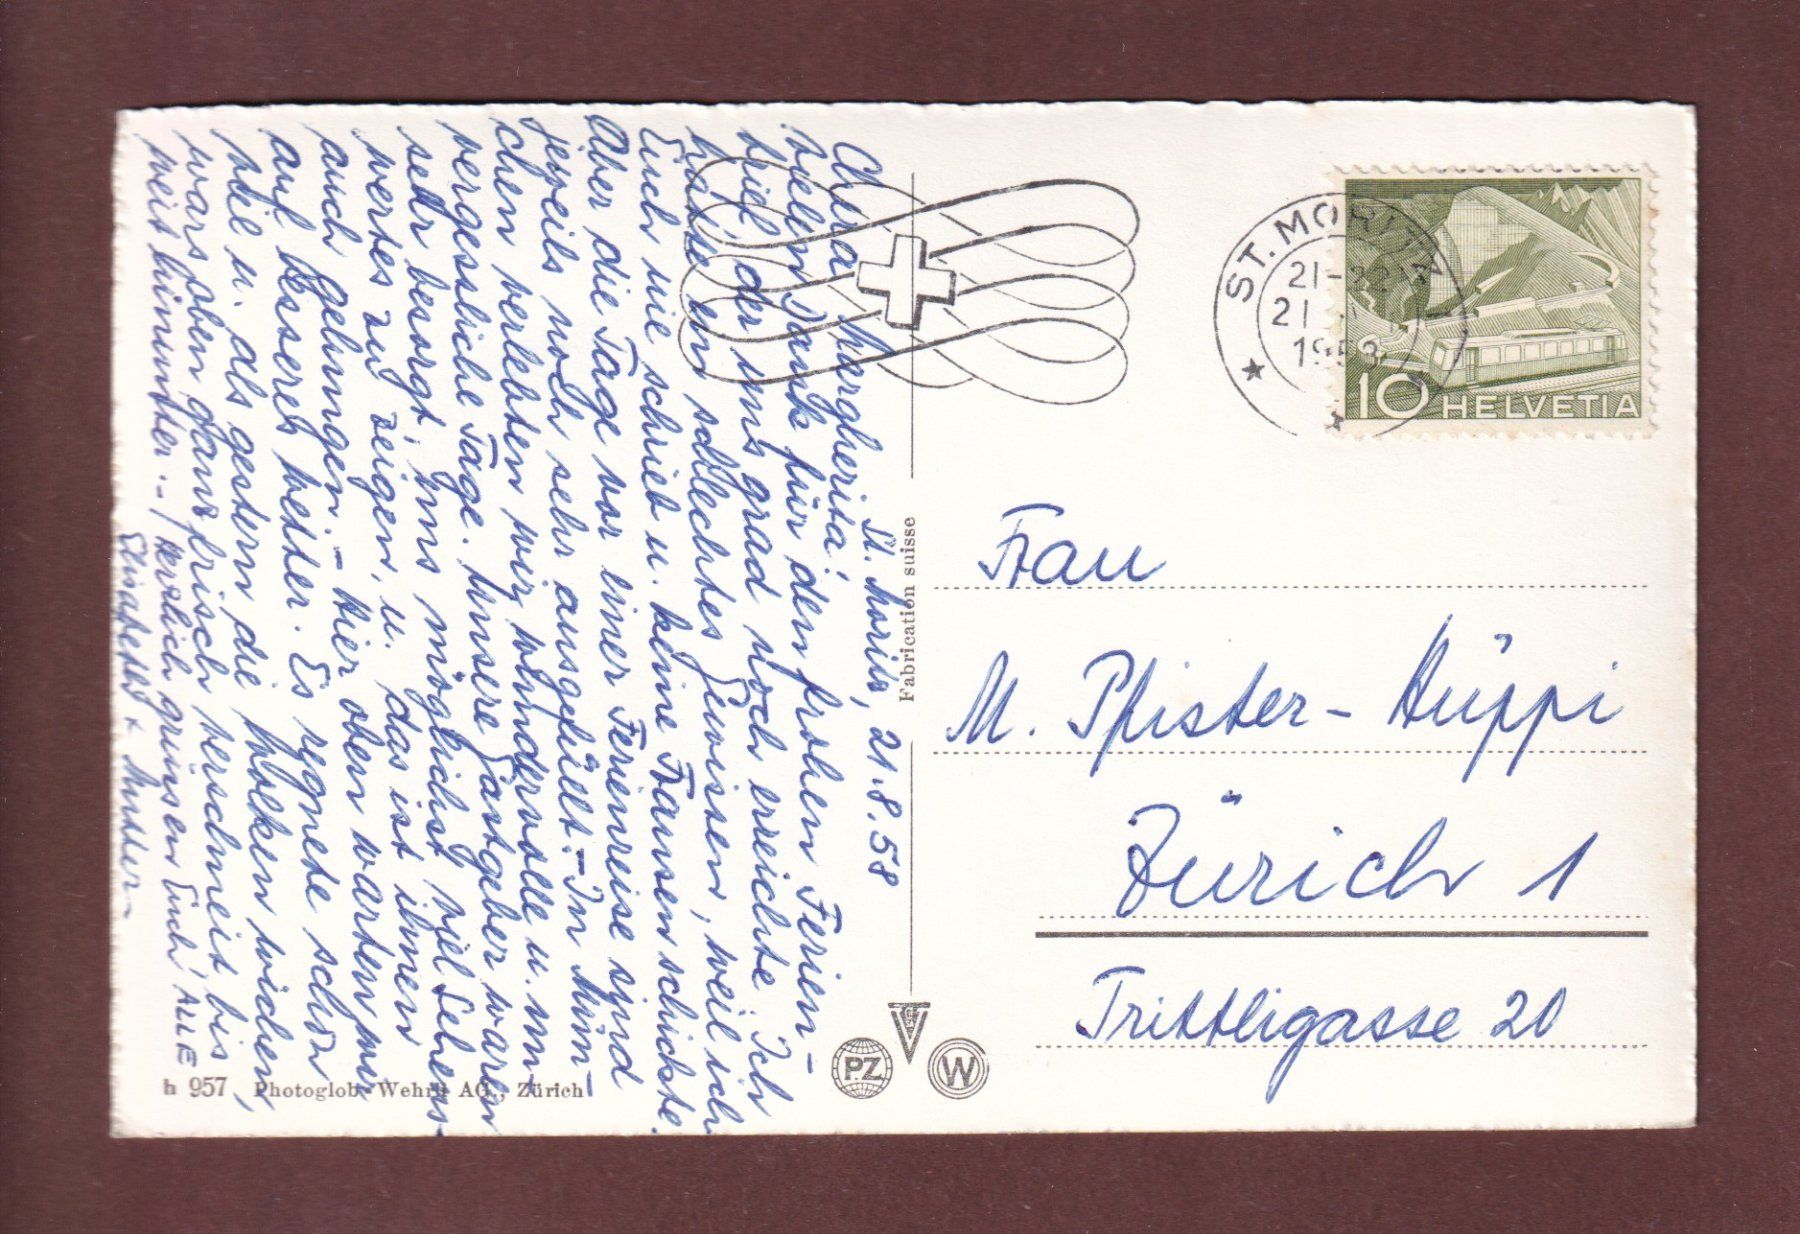 St. Moritz, 21.8.58
Chara Margherita!
Vielen Dank für den frohen Ferien-
brief, der uns grad noch erreichte. Ich
hatte ein schlechtes Gewissen, weil ich
Euch nie schrieb u. keine Transen schickte.
Aber die Tage vor einer Ferienreise sind
jeweils noch sehr ausgefüllt. - In Mün-
chen verlebten wir wundervolle u. un-
vergessliche Tage. Unsere Gastgeber waren
sehr besorgt, uns möglichst viel Sehens-
wertes zu zeigen, u. das ist ihnen
auch gelungen. - Hier oben warten wir
auf besseres Wetter. Es regnete schon
viel u. als gestern die Wolken wichen,
wars oben ganz frisch verschneit bis
weit hinunter. - Herzlich grüssen Euch ALLE
Elisabeth + Mutter
Fabrication suisse
h 957 Photoglob-Wehrli AG., Zürich
PZ
W
ST. MORITZ
21-22
21
1958
10 HELVETIA
Frau
M. Pfister-Hüppi
Zürich 1
Trittligasse 20